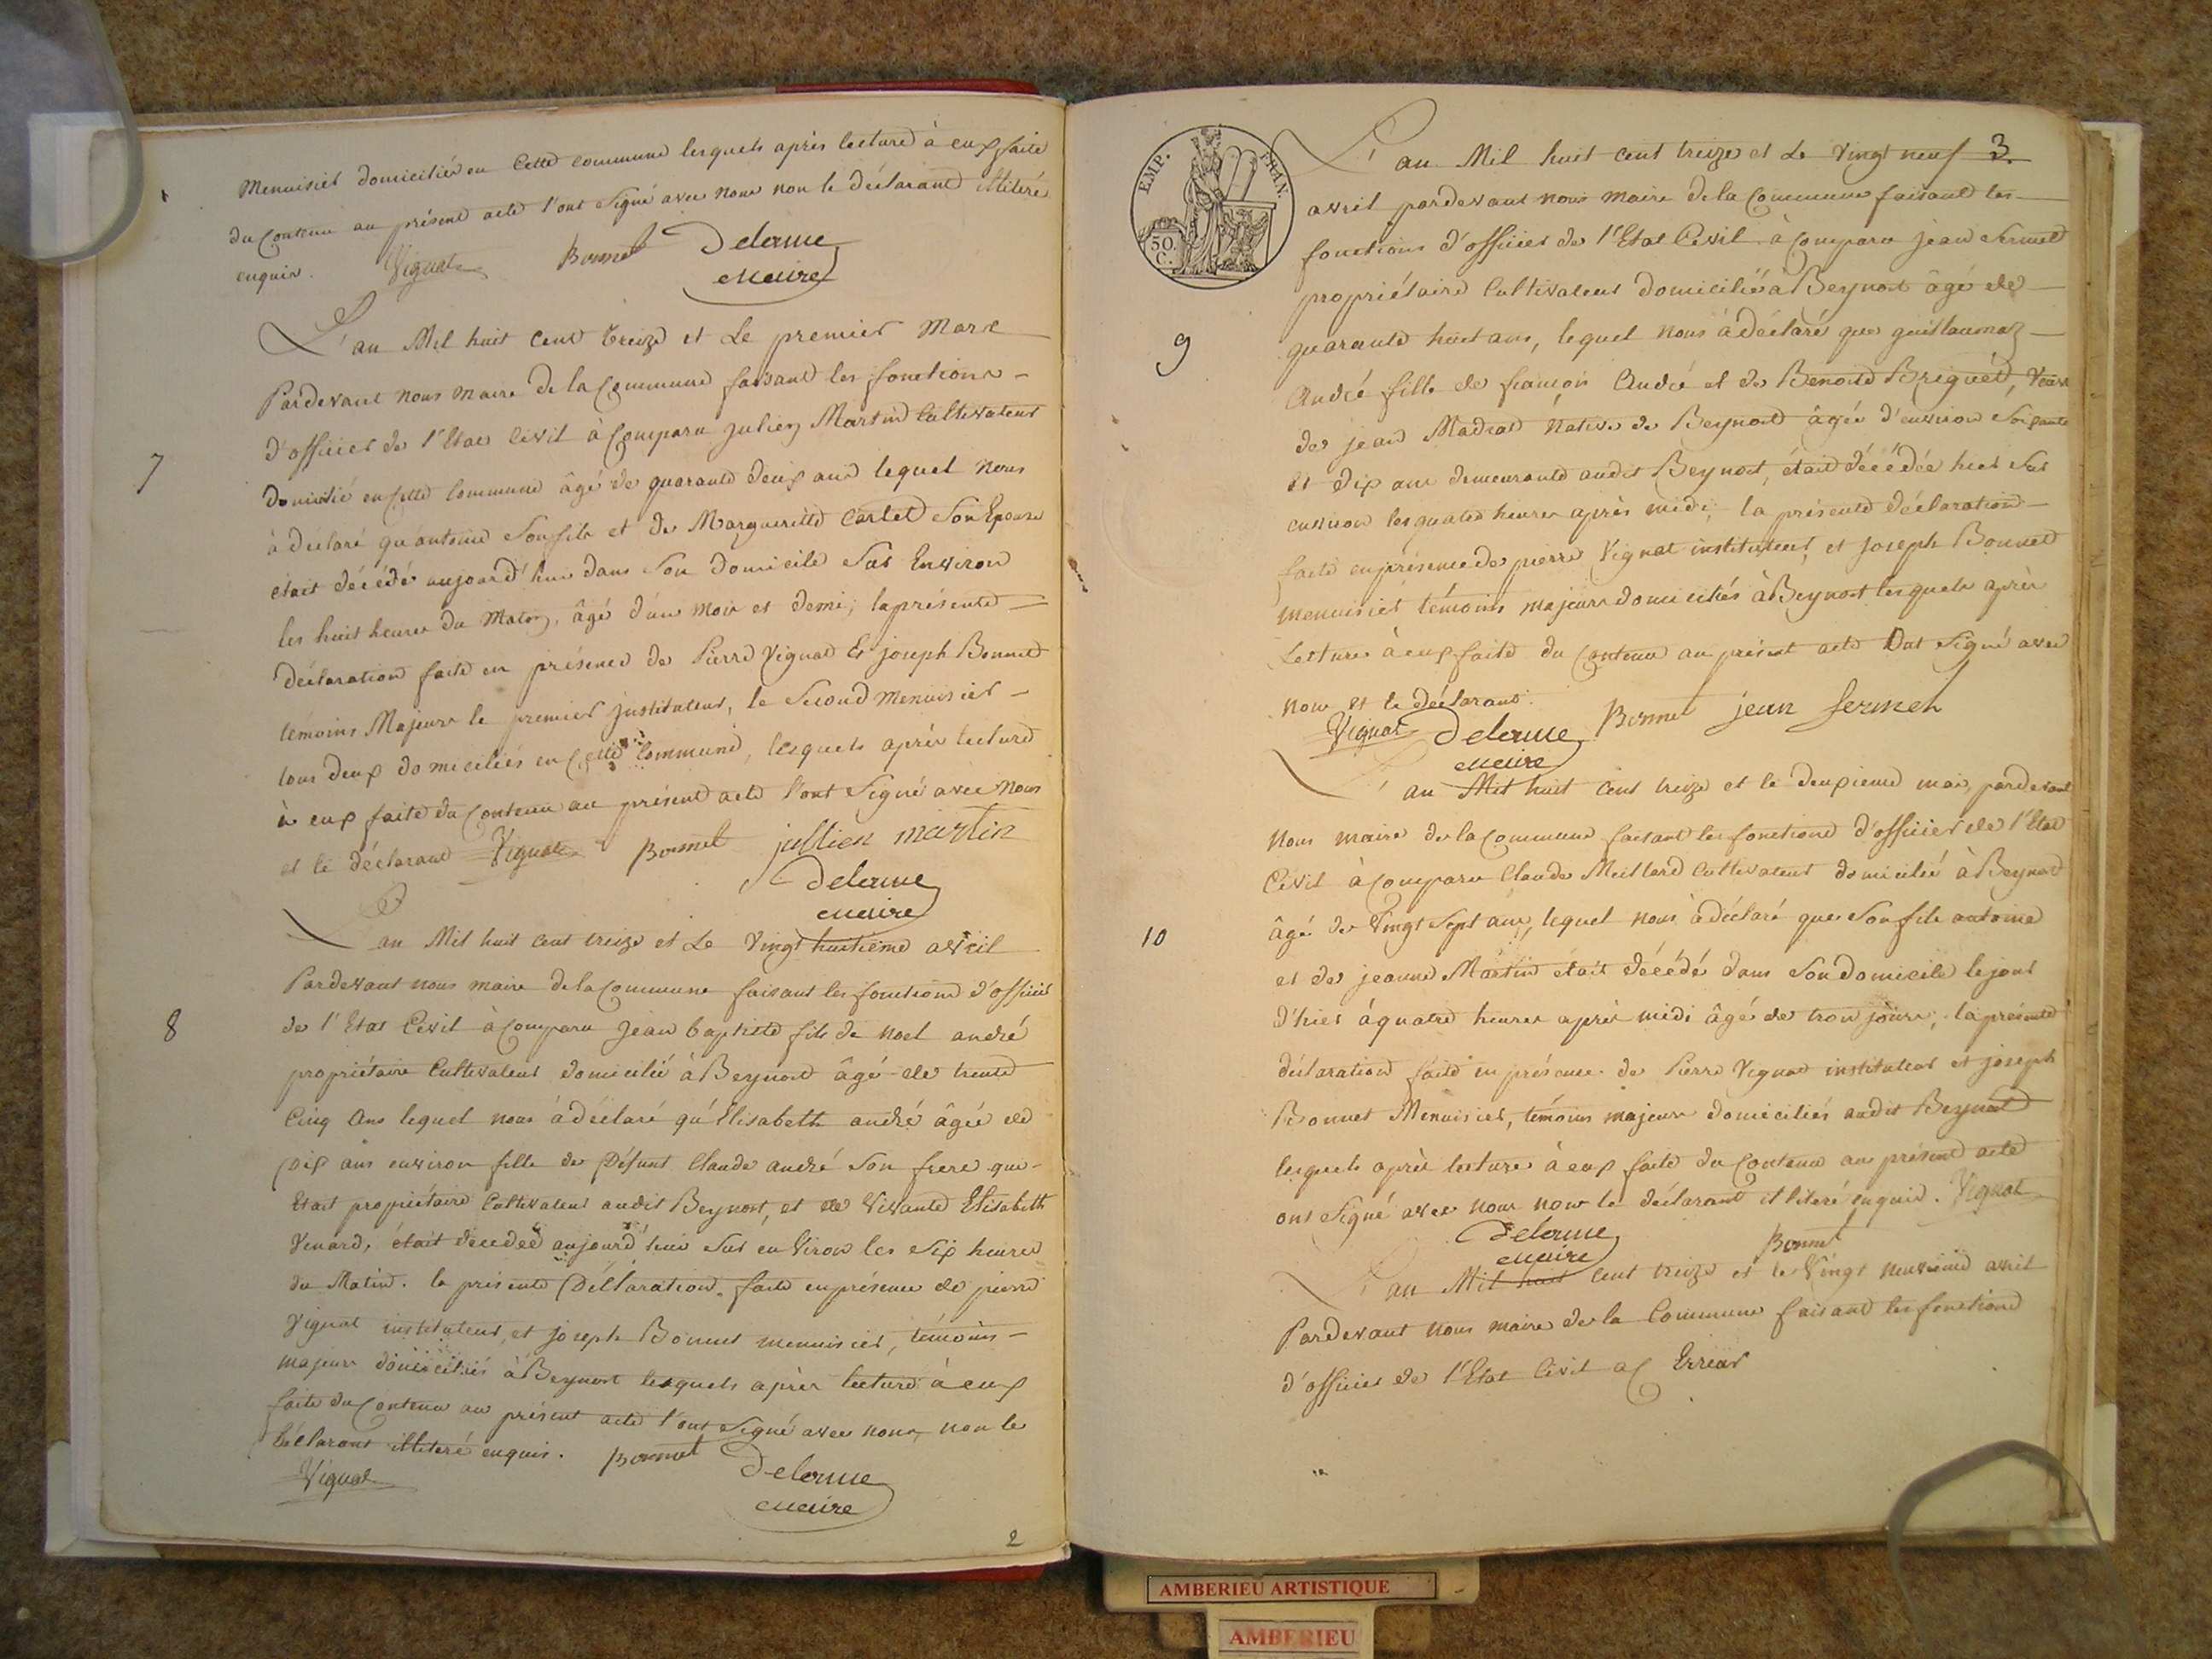 Menuisier domiciliés en Cette commune lesquels après lecture à eux faite
du Contenu au présent acte l'ont Signé avec Nous non le déclarant illiteré
enquis. Vignat Bonnet Delorme
Maire
L'an Mil huit Cent treize et Le premier Mars
Pardevant Nous Maire de la Commune faisant les fonctions
d'officier de l'Etat Civil à Comparu Julien Martin Cultivateur
7
domicilié en Cette Commune âgé de quarante deux ans lequel Nous
à declaré qu'antoine Son fils et de Margueritte Carlet Son Epouse
était décédé aujourd'hui dans Son domicile Sur Environ
les huit heures du Matin, âgé d'un Mois et demi; la présente
Déclaration faite en présence de Pierre Vignat Et joseph Bonnet
témoins Majeurs le premier Instituteur, le Second Menuisier
tous deux domiciliés en Cette Commune, lesquels après lecture
à eux faite du Contenu au présent acte l'ont Signé avec Nous
et le déclarant Vignat Bonnet jullien martin
Delorme
Maire
L'an Mil huit cent treize et Le Vingt huitième avril
Pardevant nous maire de la Commune faisant les fonctions d'officier
8
de l'Etat Civil à Comparu Jean baptiste fils de Noel andré
propriétaire Cultivateur domicilié à Beynost âgé de trente
Cinq Ans lequel nous à déclaré qu'Elisabeth andré âgée de
Dix ans environ fille de Défunt Claude andré Son frere qui
Etait propriétaire Cultivateur audit Beynost, et de Vivante Elisabeth
Venard, était decedée aujourd'hui Sur enViron les Six heures
du Matin. la présente Déclaration faite en présence de pierre
Vignat instituteur, et joseph Bonnet menuisier, témoins
majeurs domiciliés à Beynost lesquels après lecture à eux
faite du Contenu au présent acte l'ont Signé avec nous, non le
Déclarant illiteré enquis. Bonnet Delorme
Vignat Maire
2
EMP. FRAN.
50
C.
L'an Mil huit cent treize et Le Vingt neuf 3.
avril pardevant nous Maire de la Commune faisant les
fonctions d'officier de l'Etat Civil à Comparu Jean Sermet
propriétaire Cultivateur domicilié à Beynost âgé de
9
quarante huit ans, lequel Nous à déclaré que guillaumaz
André fille de françois André et de Benoite Briguet, Veuve
de jean Madrat Native de Beynost âgée d'environ Soixante
et dix ans demeurante audit Beynost, était décédée hier Sur
environ les quatre heures après midi; la présente déclaration
faite en présence de pierre Vignat instituteur, et Joseph Bonnet
menuisier témoins majeurs domiciliés à Beynost lesquels après
Lecture à eux faite du Contenu au présent acte Ont Signé avec
nous et le déclarant.
Vignat Delorme Bonnet jean sermet
Maire
L'an Mil huit Cent treize et le deuxieme mai, pardevant
Nous maire de la Commune faisant les fonctions d'officier de l'Etat
Civil à Comparu Claude Meillard Cultivateur domicilié à Beynost
10
âgé de Vingt Sept ans, lequel nous à déclaré que Son fils antoine
et de jeanne Martin était décédé dans Son domicile le jour
d'hier à quatre heures après midi âgé de trois jours; la présente
déclaration faite en présence de Pierre Vignat instituteur et joseph
Bonnet Menuisier, témoins majeurs domiciliés audit Beynost
lesquels après lecture à eux faite du Contenu au présent acte
ont Signé avec nous non le déclarant illiteré enquis. Vignat
Delorme
Maire Bonnet
L'an Mil huit Cent treize et le Vingt neuvieme avril
Pardevant nous maire de la Commune faisant les fonctions
d'officier de l'Etat Civil a C Erreur
AMBERIEU ARTISTIQUE
AMBERIEU